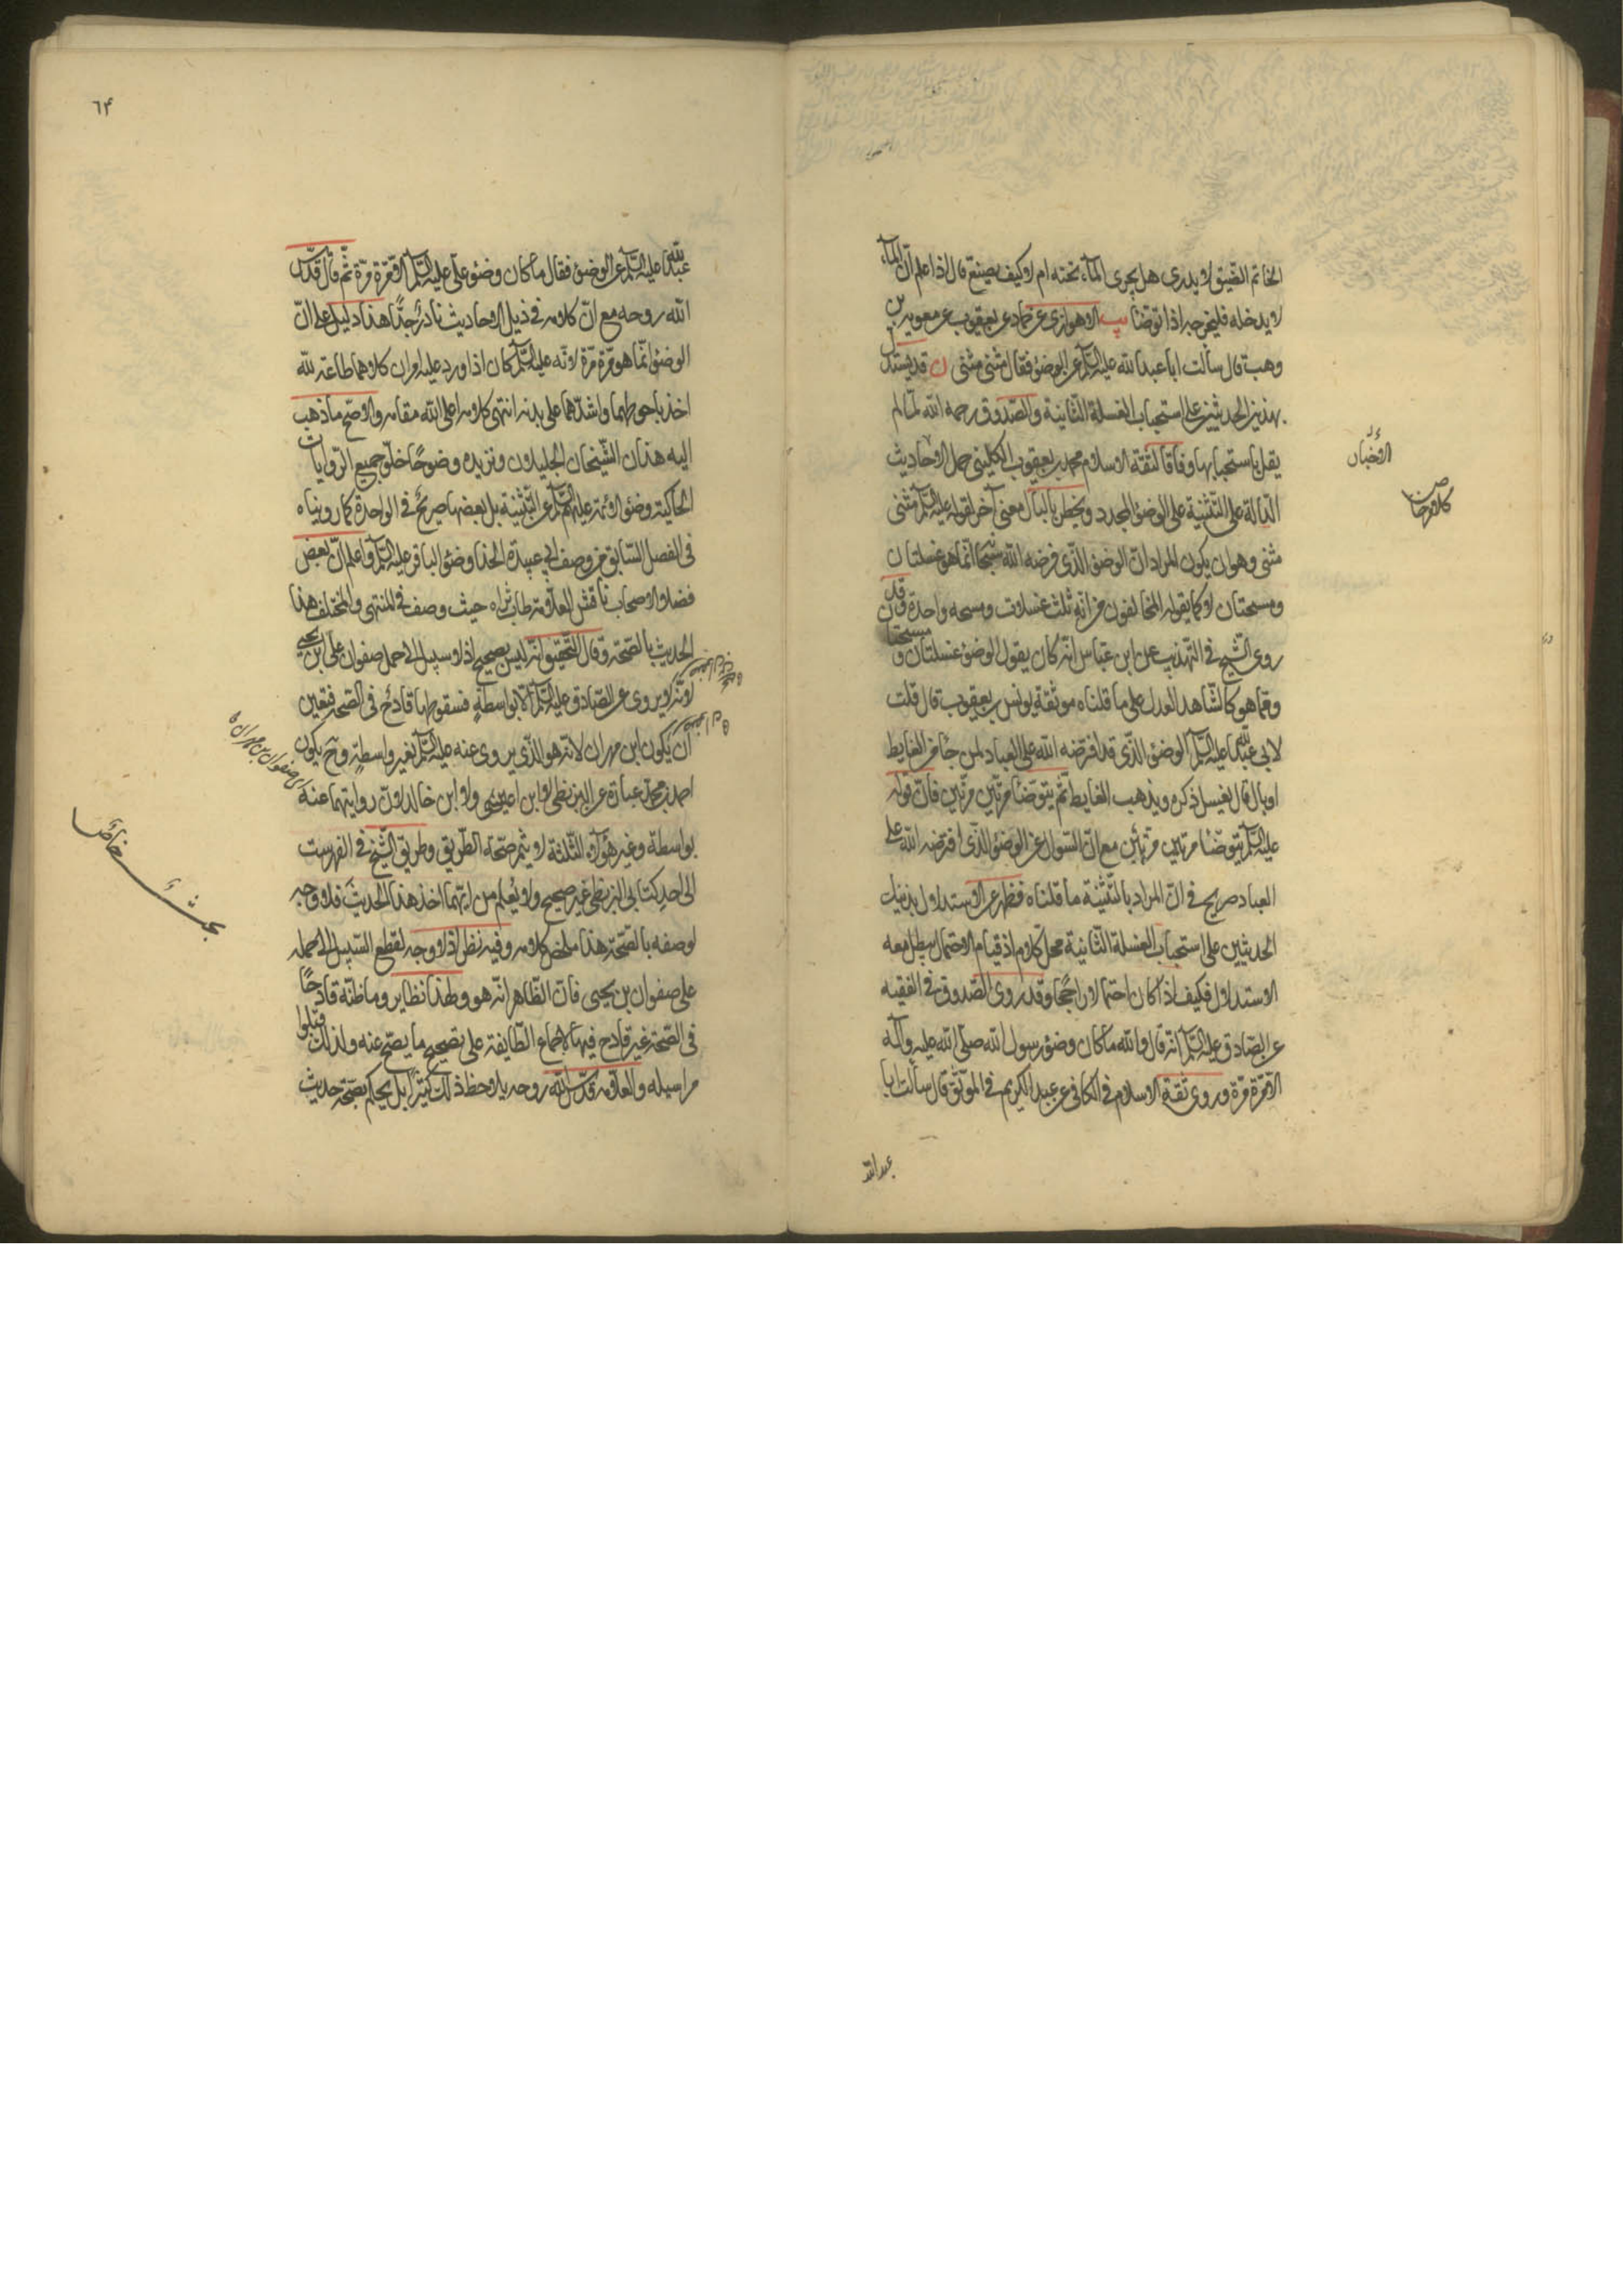 الخاتم الضيق لا يدرى هل يجرى المآء تحته ام لا كيف يصنع قال اذا علم انّ المآء
لا يدخله فليخرجه اذا توضّأ يب الاهوازى عن حماد عن يعقوب عن معوية بن
وهب قال سألت ابا عبد الله عليه السّلم عن الوضوء فقال مثنى مثنى ن قد يستدل
بهذين الحديثين على استحباب الغسلة الثّانية والصّدوق رحمه الله لمّا لم
يقل باستحبابها وفاقا لثقة الاسلام محمد بن يعقوب الكلينى حمل الاحاديث
الدّالة على التّثنية على الوضوء المجدد ويخطر بالبال معنى آخر لقوله عليه السّلم مثنى
مثنى وهو ان يكون المراد انّ الوضوء الّذى فرضه الله سبحانه انّما هو غسلتان
ومسحتان لا كما يقوله المخالفون من انّه ثلث غسلات ومسحه واحدة وقد
روى الشّيخ فى التهذيب عن ابن عبّاس انّه كان يقول الوضوء غسلتان و مسحتا
وممّا هو كالشّاهد العدل على ما قلناه موثقة يونس بن يعقوب قال قلت
لابى عبد الله عليه السّلم الوضوء الّذى قد افترضه الله على العباد لمن جآء من الغايط
او بال قال يغسل ذكره ويذهب الغايط ثمّ يتوضّأ مرّتين مرّتين فانّ قوله
عليه السّلم يتوضّأ مرتين مرّتين مع انّ السّؤال عن الوضوء الّذى افترضه الله على
العباد صريح فى انّ المراد بالتّثنية ما قلناه فظهر عن الاستدلال بذينك
الحديثين على استحباب الغسلة الثّانية محل كلام اذ قيام الاحتمال يبطل معه
الاستدلال فكيف اذا كان احتمالا راجحا وقد روى الصّدوق فى الفقيه
عن الصّادق عليه السّلم انّه قال والله ما كان وضوء رسول الله صلّى الله عليه وآله
الّا مرّة مرّة وروى ثقة الاسلام فى الكافى عن عبد الكريم فى الموثّق قال سألت ابا
عبد الله
الاخبار
٦٤
عبد الله عليه السّلم عن الوضوء فقال ما كان وضوء على عليه السّلم الّا مرّة مرّة ثمّ قال قدّس
الله روحه مع انّ كلامه فى ذيل الاحاديث نادر جدّا هذا دليل على انّ
الوضوء انّما هو مرّة مرّة لانّه عليه السّلم كان اذا ورد عليه امران كلاهما طاعة لله
اخذ باحوطهما واشدّهما على بدنه انتهى كلامه اعلى الله مقامه والاصح ما ذهب
اليه هذان الشّيخان الجليلان ونزيده وضوحا خلوّ جميع الرّوايات
الحاكية وضوء الائمة عليهم السّلم عن التّثنية بل بعضها صريح فى الواحدة كما رويناه
فى الفصل السّابق من وصف ابى عبيدة الحذا وضوء الباقر عليه السّلم واعلم انّ بعض
فضلاء الاصحاب ناقش العلامة طاب ثراه حيث وصف فى المنتهى والمختلف هذا
الحديث بالصّحة وقال التّحقيق انّه ليس بصحيح اذ لا سبيل الى حمل صفوان على ابن يحيى
لانّه لا يروى عن الصّادق عليه السّلم الّا بواسطة فسقوطها قادح فى الصّحة فتعين
ان يكون ابن مهران لانّه هو الّذى يروى عنه عليه السّلم بغير واسطة وح يكون
احمد بن محمد عبارة عن البزنطى لا ابن عيسى ولا ابن خالد لانّ روايتهما عنه
بواسطة وغير هؤلاء الثّلثة لا يثمر صحّة الطّريق وطريق الشّيخ فى الفهرست
الى احد كتابى البزنطى غير صحيح ولا يُعلم من ايّهما اخذ هذا الحديث فلا وجه
لوصفه بالصّحة هذا ملخص كلامه وفيه نظر اذ لا وجه لقطع السّبيل الى حمله
على صفوان بن يحيى فانّ الظّاهر انّه هو ولهذا نظاير وما ظنّه قادحًا
فى الصّحة غير قادح فيها لاجماع الطّايفة على تصحيح ما يصّح عنه ولذلك قبلوا
مراسيله والعلّامة قدّس الله روحه يلاحظ ذلك كثيرا بل يحكم بصحّة حديث
اى صفوان بن مهران